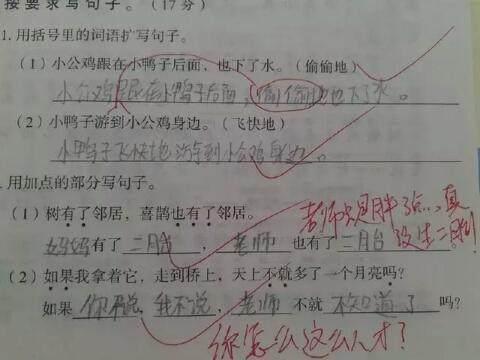 按要求写句子。(17分)
1.用括号里的词语扩写句子。
(1)小公鸡跟在小鸭子后面,也下了水。(偷偷地)
小公鸡跟在小鸭子后面,偷偷地也下了水。
(2)小鸭子游到小公鸡身边。(飞快地)
小鸭子飞快地游到小公鸡身边。
.用加点的部分写句子。
(1)树有了邻居,喜鹊也有了邻居。
老师只是胖了点...真
妈妈有了二月台,老师也有了二月台
没生二胎
(2)如果我拿着它,走到桥上,天上不就多了一个月亮吗?
如果你不说,我不说,老师不就不知道了吗?
你怎么这么人才?